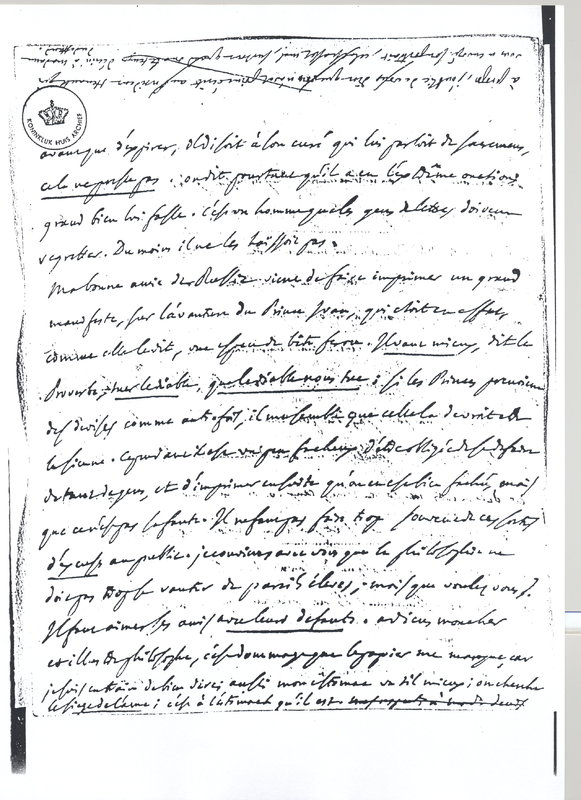 à propos, j'oublie de vous dire que
KONINKLIJK HUIS ARCHIEF
avant que d'expirer, il disoit à son curé qui lui parloit de sacremens,
cela ne presse pas. on dit pourtant qu'il a eu l'extrême onction;
grand bien lui fasse. C'est un homme que les gens de lettres doivent
regretter. Du moins il ne les haïssoit pas.
Ma bonne amie de Russie vient de faire imprimer un grand
manifeste, sur l'avanture du Prince Ivan, qui etoit en effet,
comme elle le dit, une espece de bête feroce. Il vaut mieux, dit le
Proverbe, tuer le diable, que le diable nous tue; si les Princes prenoient
des devises comme autrefois, il me semble que celle la devroit etre
la sienne. Cependant il est un peu facheux d'être obligé de se defaire
de tant de gens, et d'imprimer ensuite qu'on en est bien faché, mais
que ce n'est pas sa faute. Il ne faut pas faire trop souvent de ces sortes
d'excuses au public. je conviens avec vous que la philosophie ne
doit pas trop se vanter de pareils éleves; mais que voulez vous?
Il faut aimer ses amis avec leurs defauts. adieu mon cher
et illustre philosophe, c'est dommage que le papier me manque, car
je suis en train de bien dire, aussi mon estomac va t'il mieux; on cherche
le siege de l'ame; c'est à l'estomach qu'il est